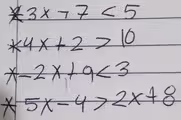 * 3x - 7 < 5
* 4x + 2 > 10
* -2x + 9 < 3
* 5x - 4 > 2x + 8